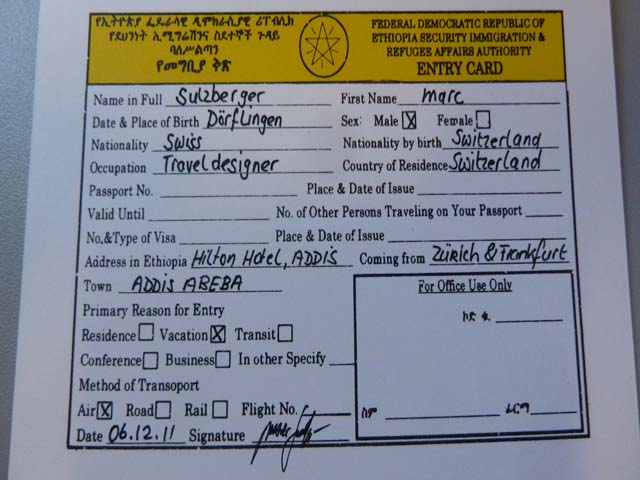 የኢትዮጵያ ፌዴራላዊ ዲሞክራሲያዊ ሪፐብሊክ
የደህንነት ኢሚግሬሽንና ስደተኞች ጉዳይ
ባለሥልጣን
የመግቢያ ቅጽ
FEDERAL DEMOCRATIC REPUBLIC OF
ETHIOPIA SECURITY IMMIGRATION &
REFUGEE AFFAIRS AUTHORITY
ENTRY CARD
Name in Full Sulzberger First Name marc
Date & Place of Birth Dörflingen Sex: Male X Female
Nationality Swiss Nationality by birth Switzerland
Occupation Travel designer Country of Residence Switzerland
Passport No. Place & Date of Issue
Valid Until No. of Other Persons Traveling on Your Passport
No,&Type of Visa Place & Date of Issue
Address in Ethiopia Hilton Hotel, ADDIS Coming from Zürich & Frankfurt
Town ADDIS ABEBA
Primary Reason for Entry
Residence Vacation X Transit
Conference Business In other Specify
Method of Transoport
Air X Road Rail Flight No.
Date 06.12.11 Signature
For Office Use Only
ኮድ ቁ.
ስም ፊርማ